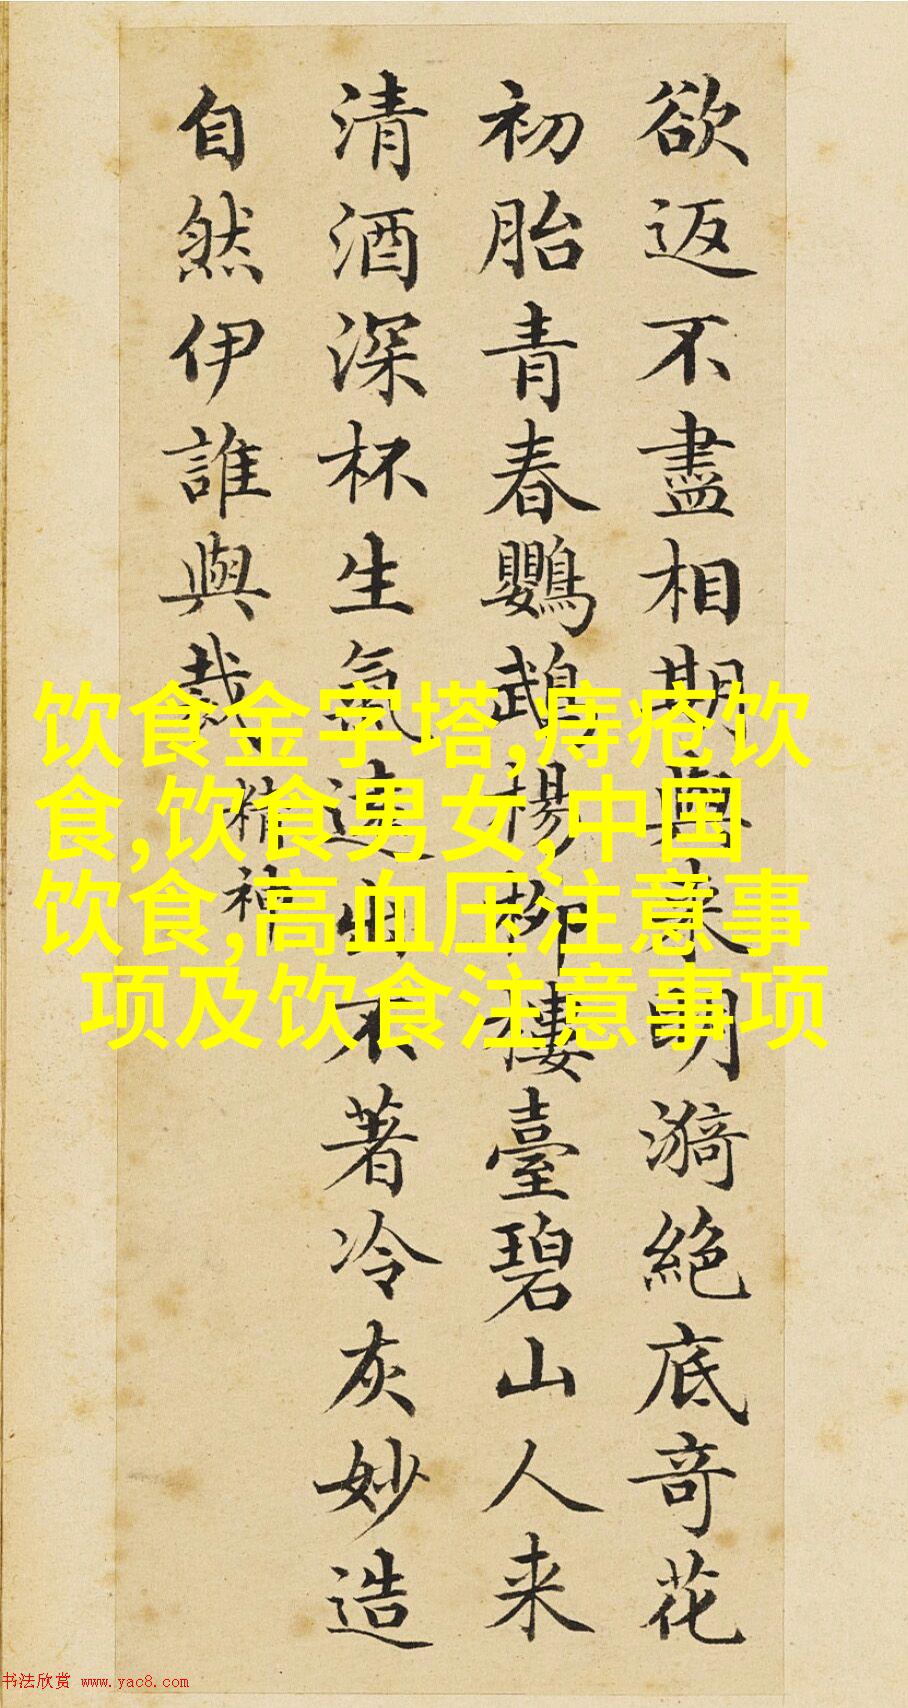 欲返不盡相期與来明漪絕底奇花
初胎青春鸚鵡楊柳樓臺碧山人来
清酒深杯生氣遠出不著冷灰妙造
自然伊誰與裁
精神
饮食金字塔,痔疮饮
食,饮食男女,中国
饮食,高血压注意事
项及饮食注意事项
书法欣赏 www.yac8.com